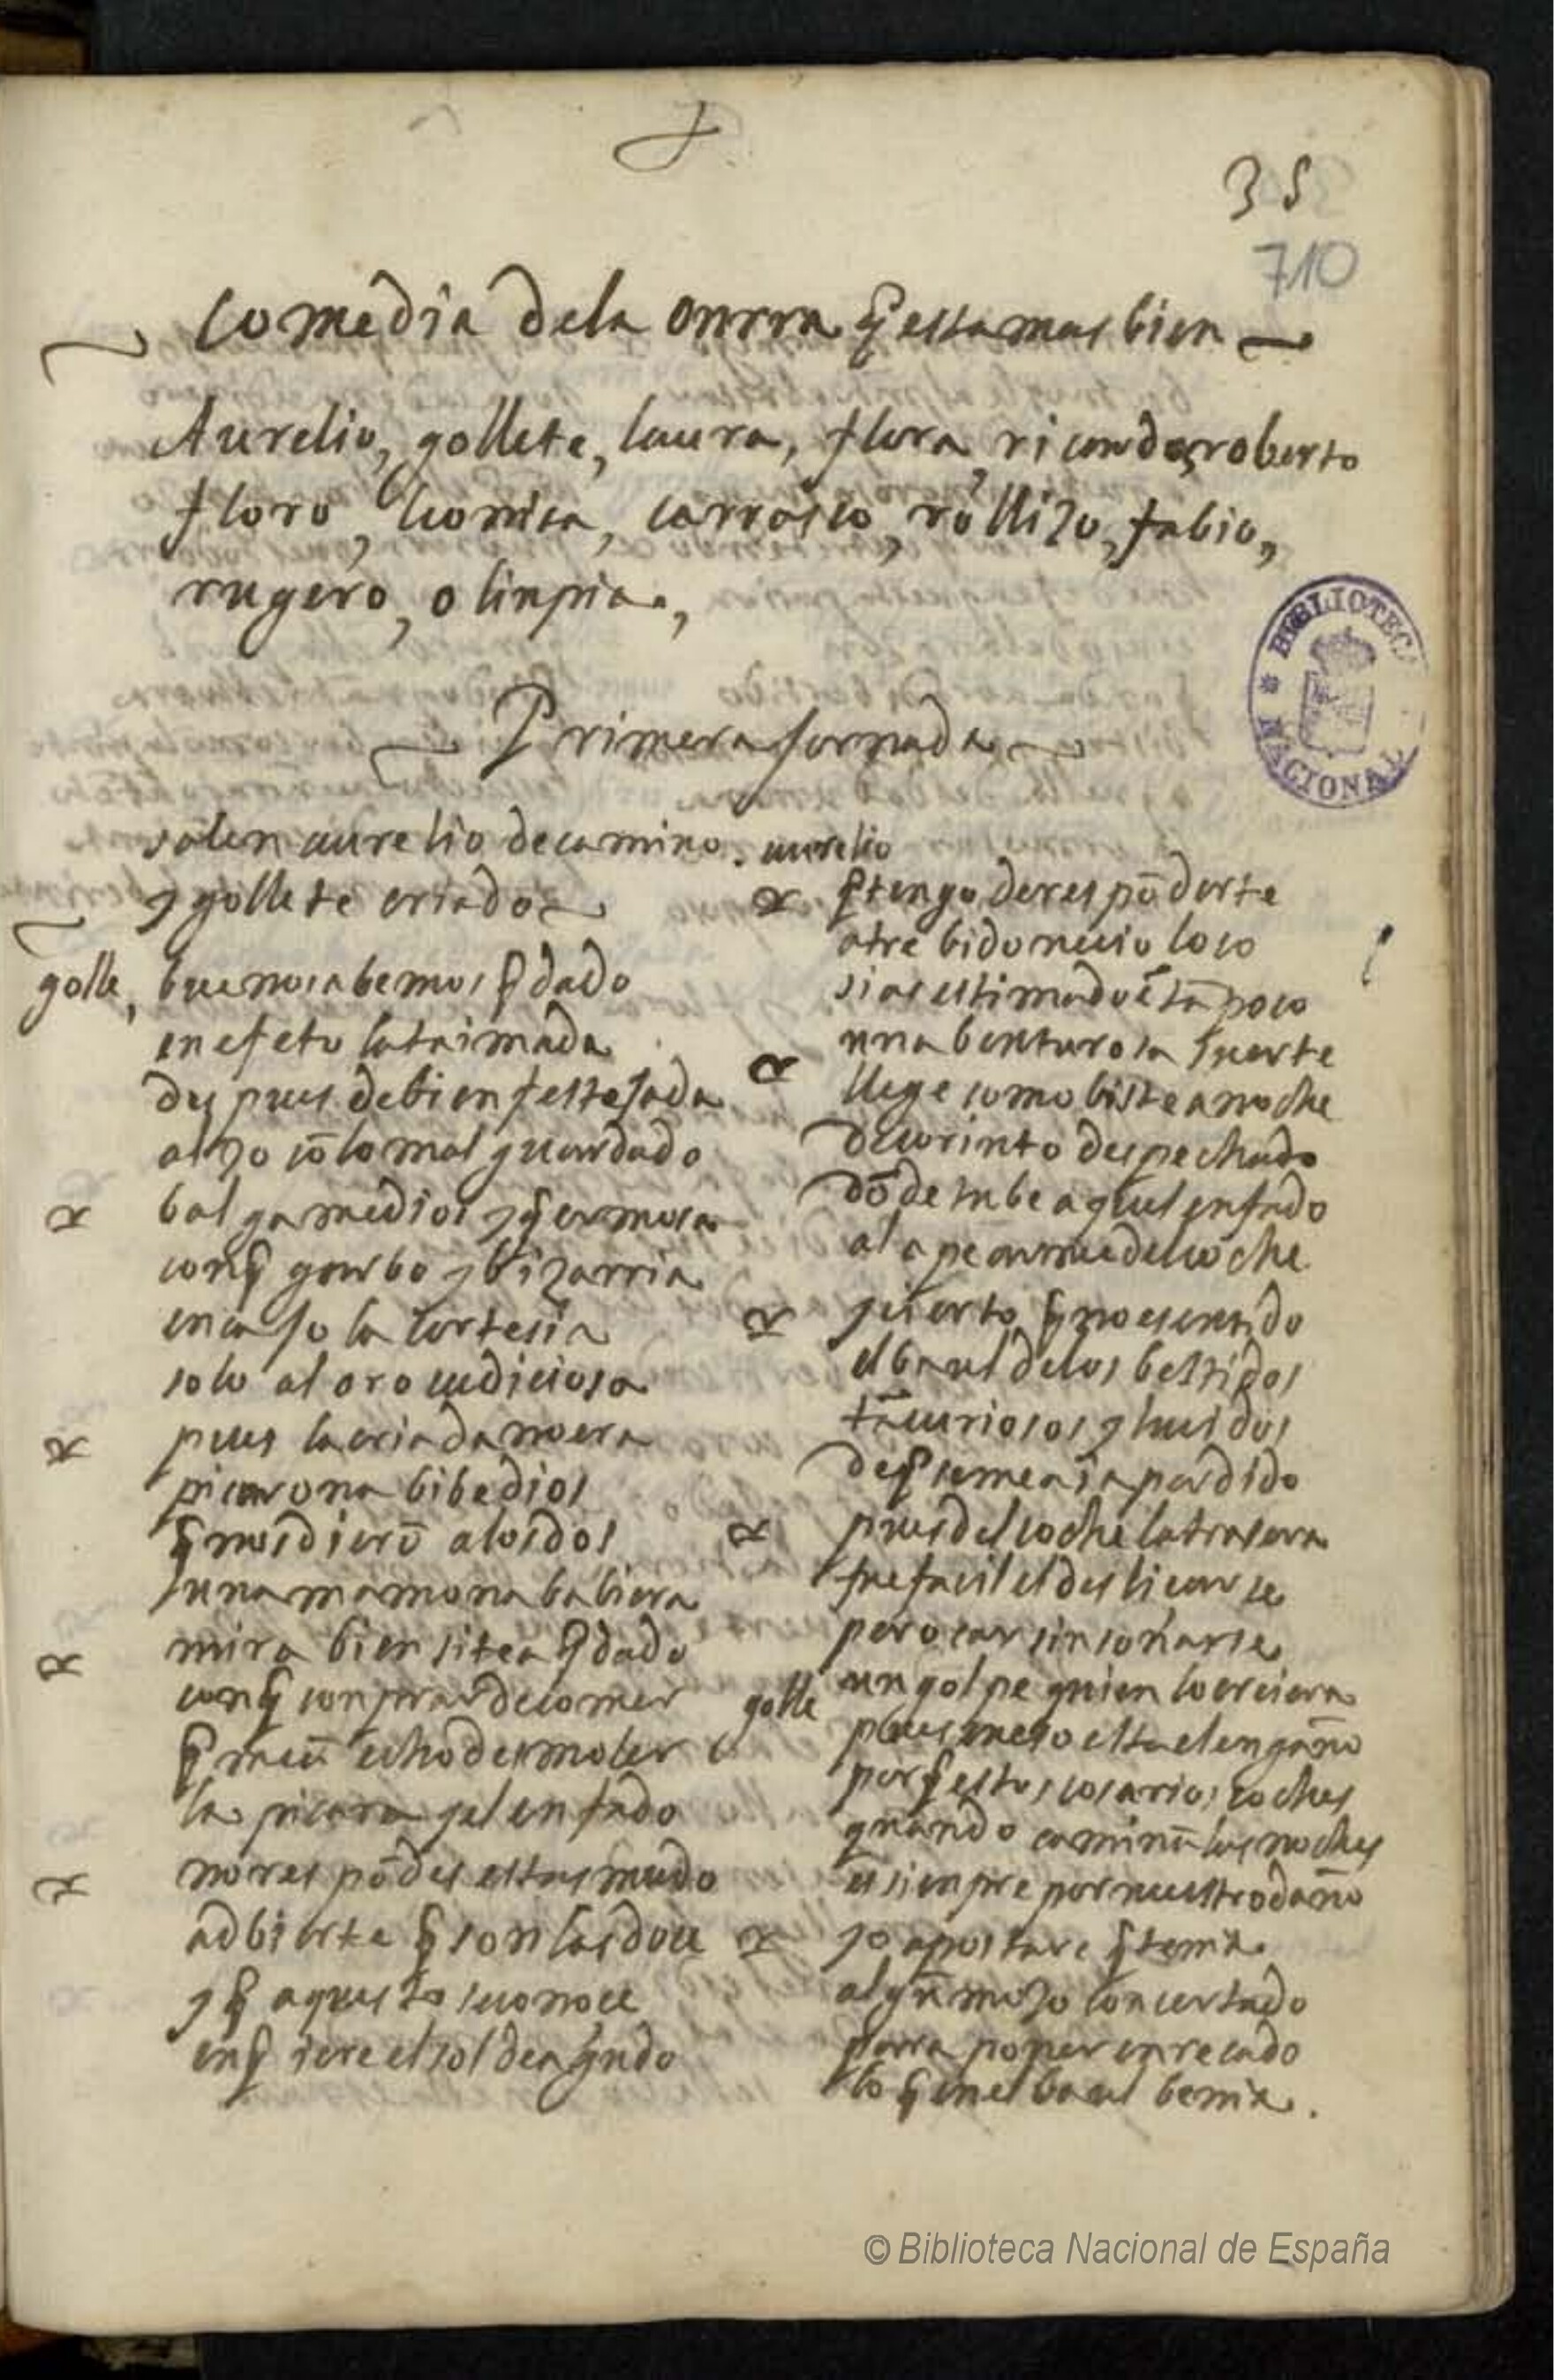 35
710
comedia dela onrra q̃ esta mas bien
Aurelio, gollete, laura, flora, ricardo, roberto
floro, leonisa, carrasco, rollizo, fabio,
rugero, olinpia,
Primera Jornada
salen aurelio de camino
y gollete criado
golle, buenos abemos q̃dado
en efeto la taimada
despues de bien festejada
alzo cõ lo mal guardado
balgame dios y q̃ ermosa
con q̃ garbo y bizarria
solo al oro cudiciosa
pues la criada no era
picarona bibe dios
q̃ nos dierõ a los dos
una mamona
mira bien si te a q̃dado
con q̃ conprar de comer
q̃ echo de moler
la picara y el enfado
no respõdes estas mudo
adbierte q̃ son las doce
y q̃ aquesto se conoce
en q̃ iere el sol de agudo
aurelio
q̃ tengo de respõderte
atrebido necio loco
si as estimado ẽ tã poco
una benturosa suerte
llege como biste anoche
de corinto despechado
dõde tube aquel enfado
al apearme del coche
y cierto q̃ no e sentido
el baul de los bestidos
tã curiosos y lucidos
de q̃ se me aia perdido
pues del coche la trasera
fue facil el desliçarse
pero caer sin sonarse
un golpe quien lo creiera
golle pues en eso esta el engaño
porq̃ estos cosarios coches
quando caminã las noches
es sienpre por nuestro daño
yo apostare q̃ tenia
algũ mozo concertado
para poner en recado
lo q̃ en el baul benia.
BIBLIOTECA NACIONAL
© Biblioteca Nacional de España